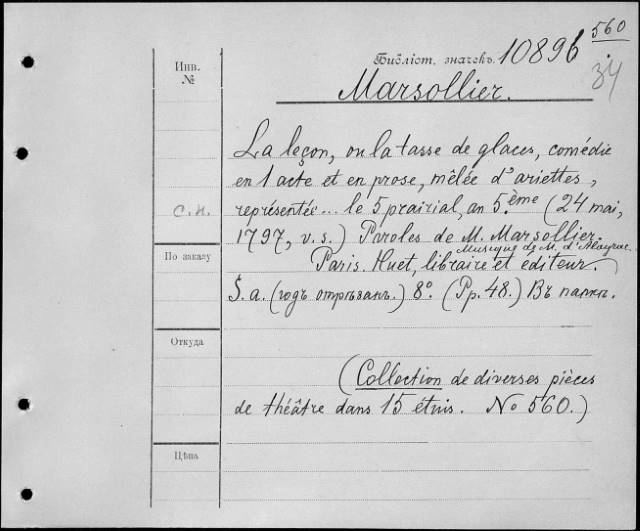 560
Инв.
№
Библіот. значекъ. 10896
34
Marsollier.
La leçon, ou la tasse de glaces, comédie
en 1 acte et en prose, mêlée d'ariettes,
représentée ... le 5 prairial, an 5.ème (24 mai,
с.н.
1797, v. s.) Paroles de M. Marsollier.
Musique de M. d'Alayrac.
По заказу
Paris. Huet, libraire et éditeur.
S. a. (годъ отрѣзанъ.) 8º. (Pp. 48.) Въ папкѣ.
Откуда
(Collection de diverses pièces
de théâtre dans 15 étuis. No 560.)
Цѣна